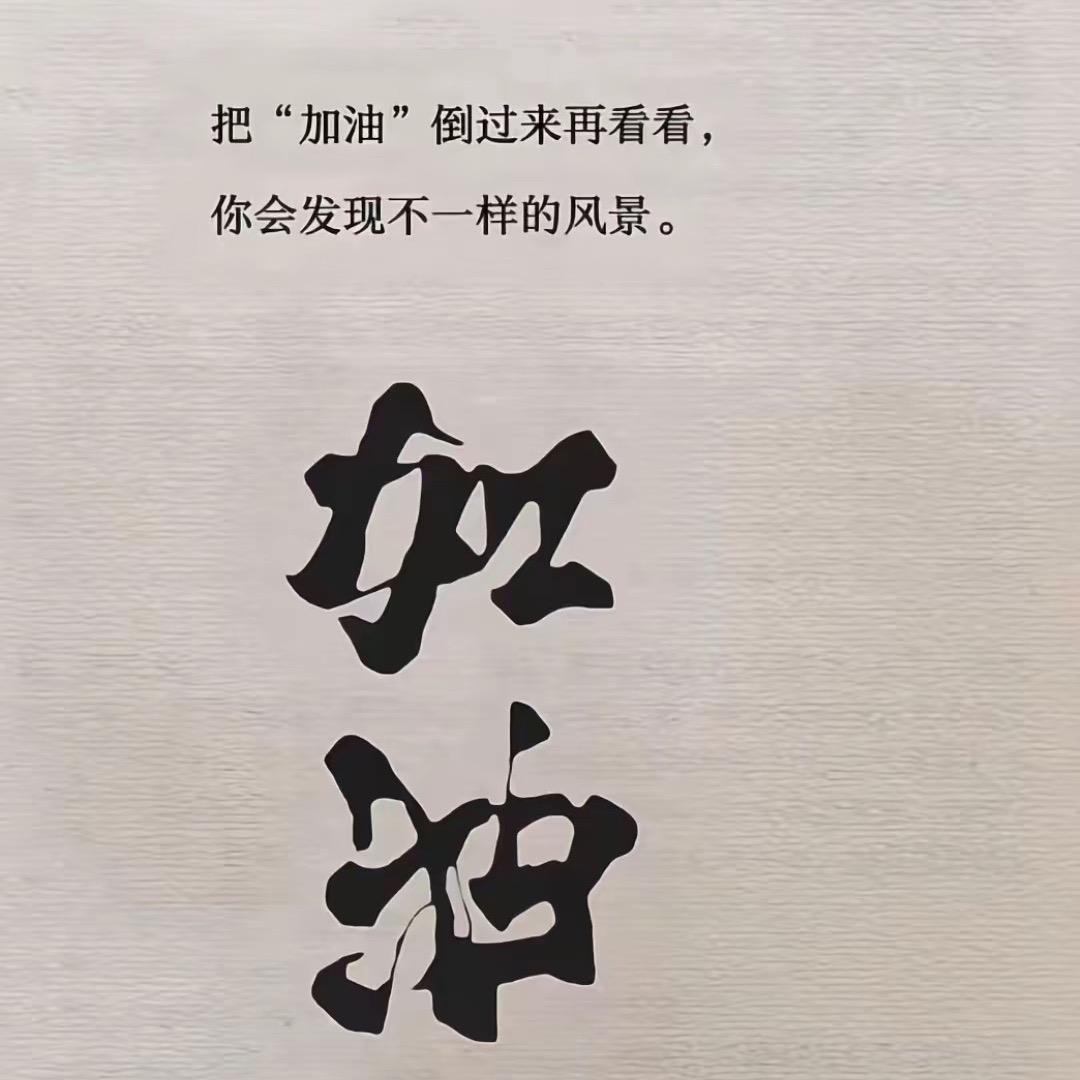 把“加油”倒过来再看看，
你会发现不一样的风景。
加
油